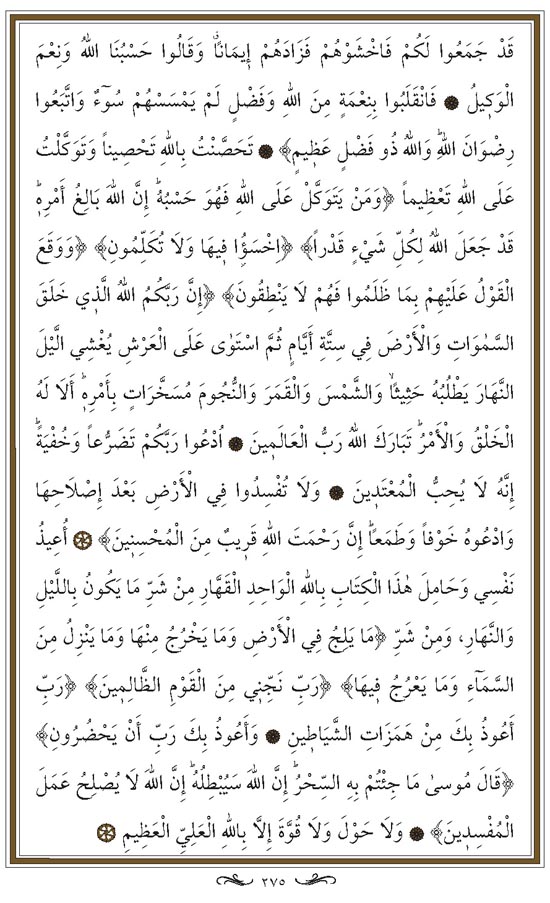 قَدْ جَمَعُوا لَكُمْ فَاخْشَوْهُمْ فَزَادَهُمْ إِيمَانًاۗ وَقَالُوا حَسْبُنَا اللهُ وَنِعْمَ
الْوَكِيلُ ۞ فَانْقَلَبُوا بِنِعْمَةٍ مِنَ اللهِ وَفَضْلٍ لَمْ يَمْسَسْهُمْ سُوٓءٌ وَاتَّبَعُوا
رِضْوَانَ اللهِۗ وَاللهُ ذُو فَضْلٍ عَظِيمٍ﴾ ۞ تَحَصَّنْتُ بِاللهِ تَحْصِيناً وَتَوَكَّلْتُ
عَلَى اللهِ تَعْظِيماً ﴿وَمَنْ يَتَوَكَّلْ عَلَى اللهِ فَهُوَ حَسْبُهُۗ إِنَّ اللهَ بَالِغُ أَمْرِهِۗ
قَدْ جَعَلَ اللهُ لِكُلِّ شَيْءٍ قَدْراً﴾ ﴿اخْسَؤُا فِيهَا وَلَا تُكَلِّمُونِ﴾ ﴿وَوَقَعَ
الْقَوْلُ عَلَيْهِمْ بِمَا ظَلَمُوا فَهُمْ لَا يَنْطِقُونَ﴾ ﴿إِنَّ رَبَّكُمُ اللهُ الَّذِي خَلَقَ
السَّمٰوَاتِ وَالْأَرْضَ فِي سِتَّةِ أَيَّامٍ ثُمَّ اسْتَوٰى عَلَى الْعَرْشِ يُغْشِي الَّيْلَ
النَّهَارَ يَطْلُبُهُ حَثِيثًاۙ وَالشَّمْسَ وَالْقَمَرَ وَالنُّجُومَ مُسَخَّرَاتٍ بِأَمْرِهِۗ أَلَا لَهُ
الْخَلْقُ وَالْأَمْرُۗ تَبَارَكَ اللهُ رَبُّ الْعَالَمِينَ ۞ اُدْعُوا رَبَّكُمْ تَضَرُّعاً وَخُفْيَةًۗ
إِنَّهُ لَا يُحِبُّ الْمُعْتَدِينَ ۞ وَلَا تُفْسِدُوا فِي الْأَرْضِ بَعْدَ إِصْلَاحِهَا
وَادْعُوهُ خَوْفاً وَطَمَعاًۗ إِنَّ رَحْمَتَ اللهِ قَرِيبٌ مِنَ الْمُحْسِنِينَ﴾ ۞ أُعِيذُ
نَفْسِي وَحَامِلَ هٰذَا الْكِتَابِ بِاللهِ الْوَاحِدِ الْقَهَّارِ مِنْ شَرِّ مَا يَكُونُ بِاللَّيْلِ
وَالنَّهَارِ، وَمِنْ شَرِّ ﴿مَا يَلِجُ فِي الْأَرْضِ وَمَا يَخْرُجُ مِنْهَا وَمَا يَنْزِلُ مِنَ
السَّمَآءِ وَمَا يَعْرُجُ فِيهَا﴾ ﴿رَبِّ نَجِّنِي مِنَ الْقَوْمِ الظَّالِمِينَ﴾ ﴿رَبِّ
أَعُوذُ بِكَ مِنْ هَمَزَاتِ الشَّيَاطِينِ ۞ وَأَعُوذُ بِكَ رَبِّ أَنْ يَحْضُرُونِ﴾
﴿قَالَ مُوسىٰ مَا جِئْتُمْ بِهِ السِّحْرُۗ إِنَّ اللهَ سَيُبْطِلُهُۗ إِنَّ اللهَ لَا يُصْلِحُ عَمَلَ
الْمُفْسِدِينَ﴾ ۞ وَلَا حَوْلَ وَلَا قُوَّةَ إِلَّا بِاللهِ الْعَلِيِّ الْعَظِيمِ ۞
٢٧٥